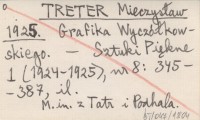 TRETER Mieczysław
1925. Grafika Wyczółkow-
skiego. — Sztuki Piękne
1 (1924-1925), nr 8: 345-
-387, il.
M. in. z Tatr i Podhala.